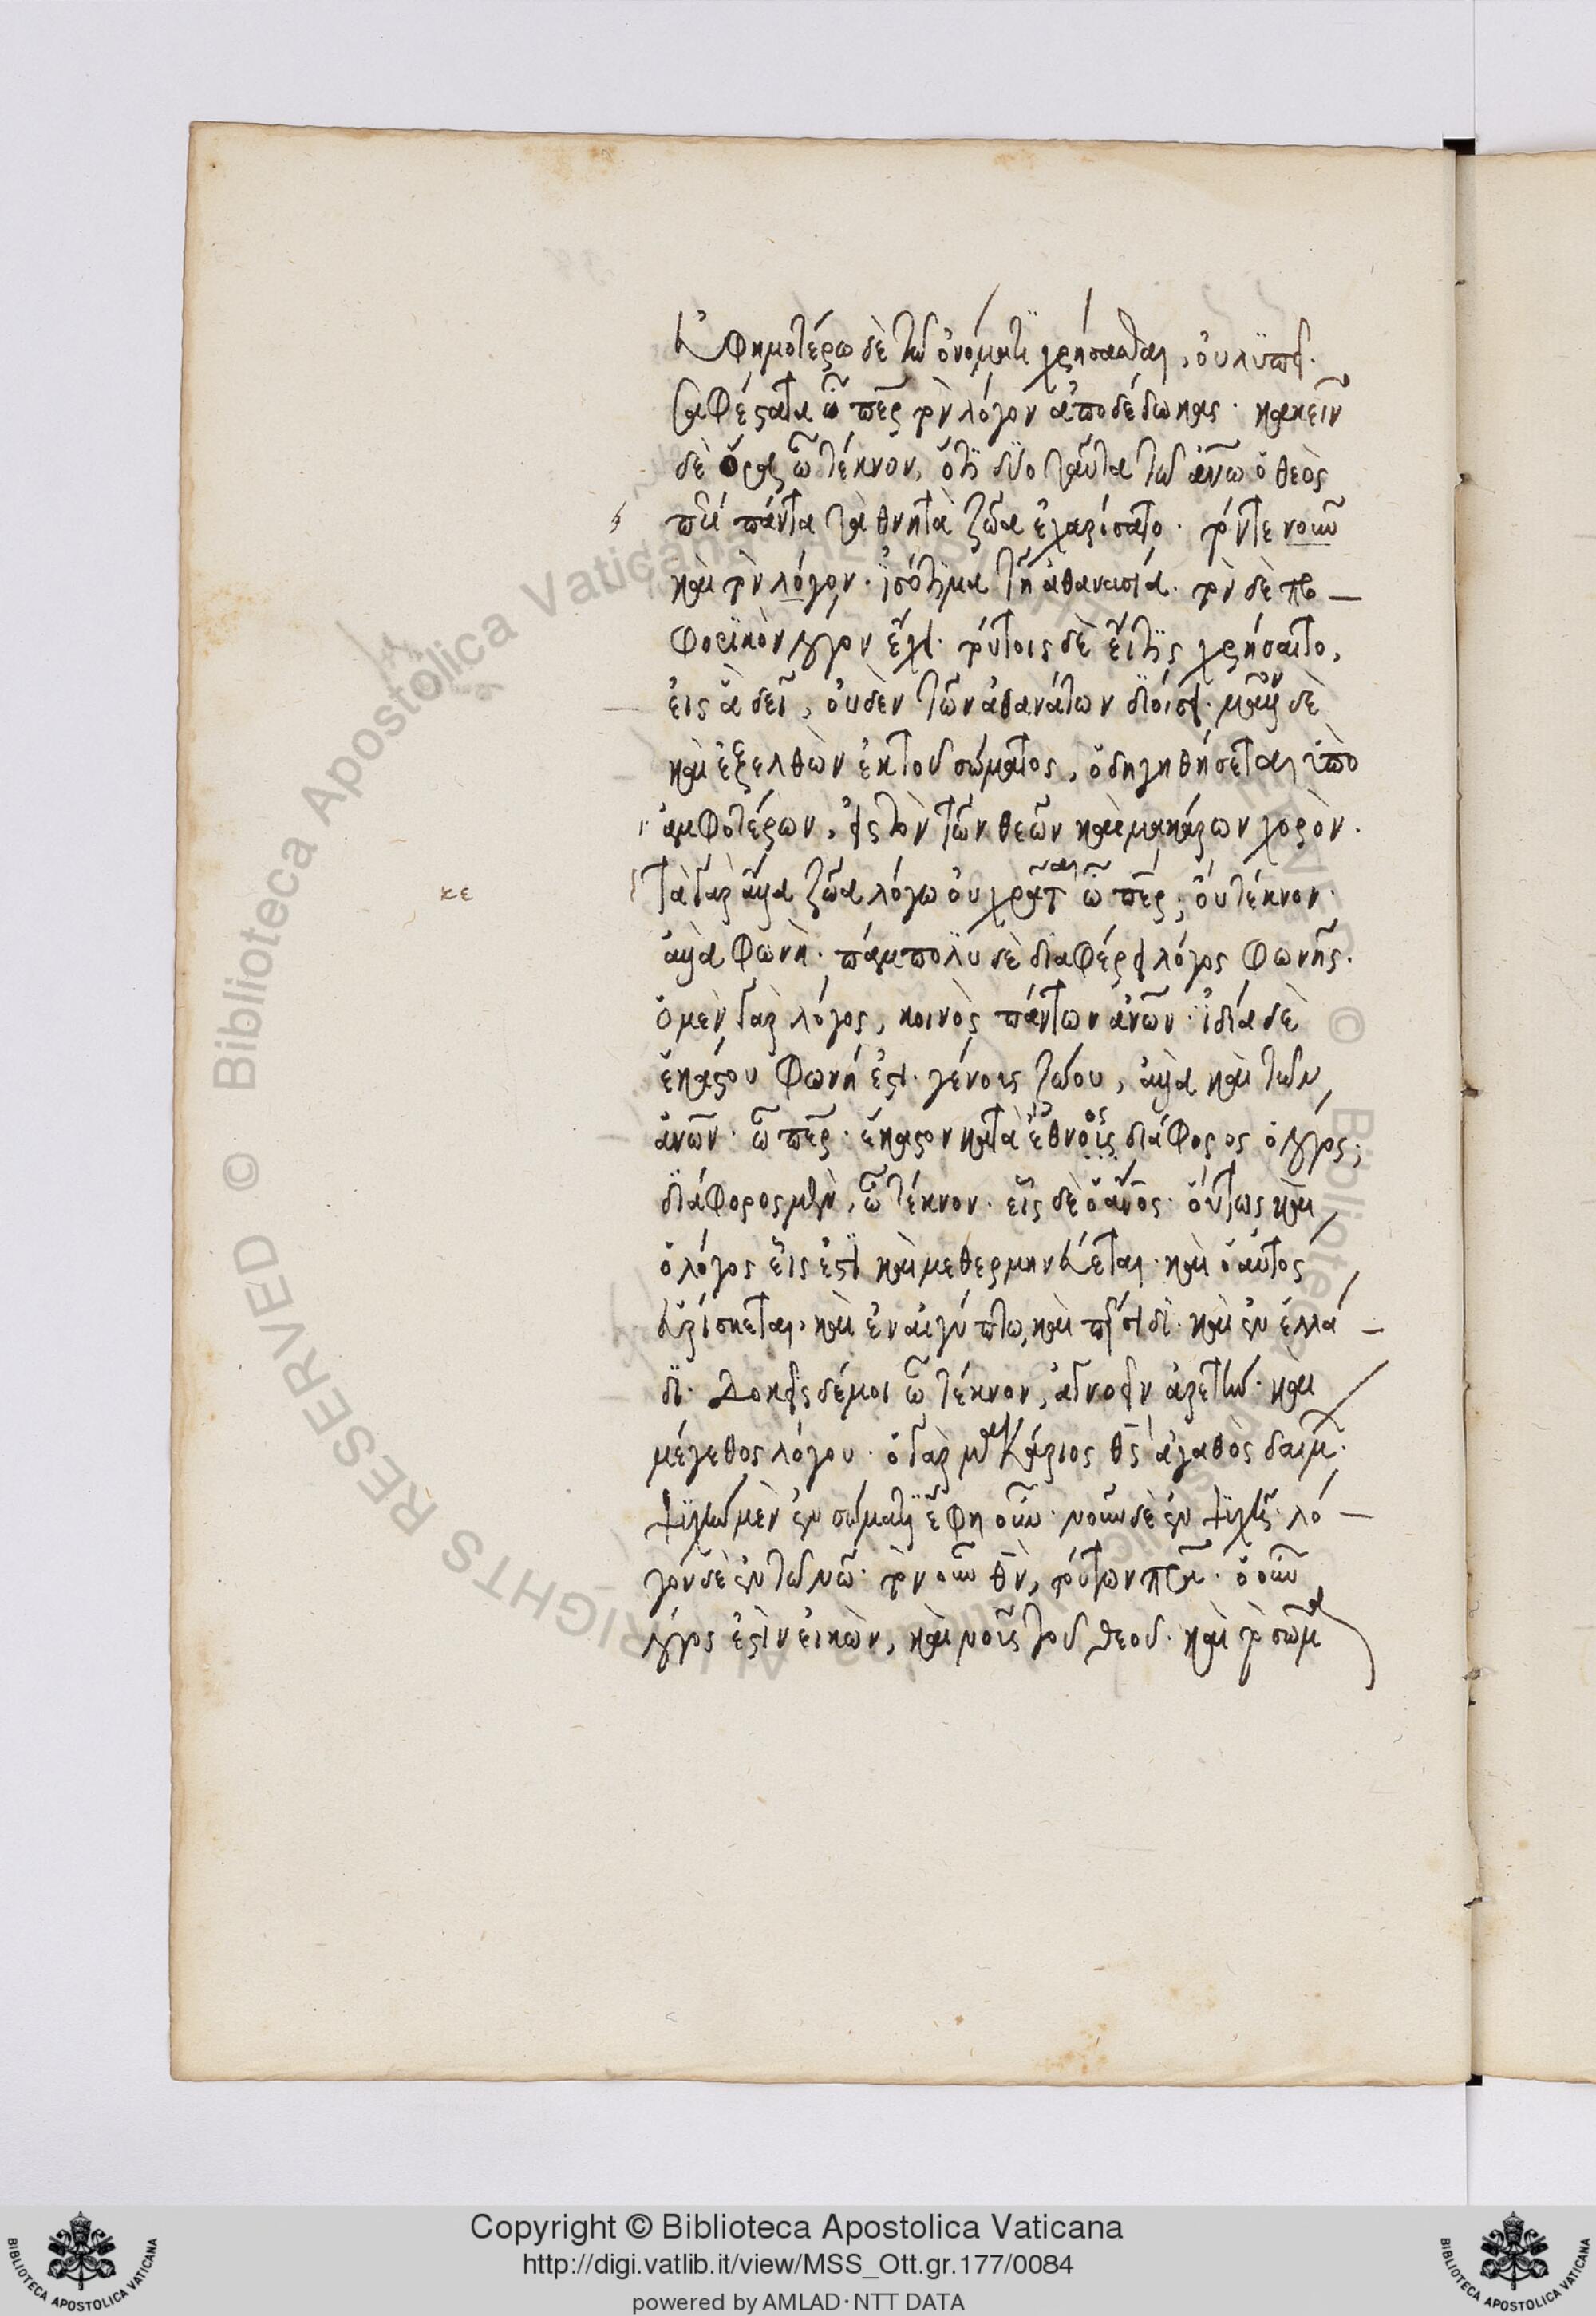 εὐφημοτέρω δὲ τῶ ὀνόματι χρήσασθαι, οὐ λυπεῖ.
σαφέστατα ὦ περ τὸν λόγον ἀποδέδωκας. κἀκεῖν
δὲ ὅρα ὦ τέκνον, ὅτι δύο ταῦτα τῶ ἀνω ὁ θεὸς
πα πάντα τὰ θνητὰ ζῶα ἐχαρίσατο. τόντε νοῦν
καὶ τὸν λόγον. ἰσότιμα τῆ ἀθανασία. τὸν δὲ προ
φορικὸν λόγον ἔχει. τούτοις δὲ εἴ τις χρήσαιτο,
εἰς ἃ δεῖ, οὐδὲν τῶν ἀθανάτων διοίσει. μᾶλλον δὲ
καὶ ἐξελθὼν ἐκ τοῦ σώματος, ὁδηγηθήσεται ὑπὸ
ἀμφοτέρων, εἰς τὸν τῶν θεῶν καὶ μακάρων χορὸν.
κε
τὰ γὰρ ἄλλα ζῶα λόγω οὐ χρᾶται ὦ περ; οὐ τέκνον.
ἀλλὰ φωνὴ. πάμπολυ δὲ διαφέρει λόγος φωνῆς.
ὁ μὲν γὰρ λόγος, κοινὸς πάντων ἀνων. ἰδία δὲ
ἑκάστου φωνή ἐστι. γένους ζώου, ἀλλὰ καὶ τῶν
ἀνων. ὦ περ. ἕκαστον κατὰ ἔθνος διάφορος ὁ λόγος;
διάφορος μὲν, ὦ τέκνον. εἷς δὲ ὁ ανος. οὕτως καὶ
ὁ λόγος εἷς ἐστι καὶ μεθερμηνεύεται. καὶ ὁ αὐτὸς
εὑρίσκεται, καὶ ἐν αἰγύπτω, καὶ περσίδι. καὶ ἐν ἑλλά
δι. Δοκεῖς δέ μοι ὦ τέκνον, ἀγνοεῖν ἀρετὴν. καὶ
μέγεθος λόγου. ὁ γὰρ μακάριος θς ἀγαθὸς δαίμ.
ψυχὴν μὲν ἐν σώματι ἔφη οὖν. νοῦν δὲ ἐν ψυχῆ. λό
γον δὲ ἐν τῶ νῶ. τὸν οὖν θν, τούτων πρα. ὁ οὖν
λόγος ἐστὶν εἰκὼν, καὶ νοῦς τοῦ θεοῦ. καὶ τὸ σῶμα
Copyright © Biblioteca Apostolica Vaticana
http://digi.vatlib.it/view/MSS_Ott.gr.177/0084
powered by AMLAD·NTT DATA
BIBLIOTECA APOSTOLICA VATICANA
BIBLIOTECA APOSTOLICA VATICANA
© Biblioteca Apostolica Vaticana ALL RIGHTS RESERVED